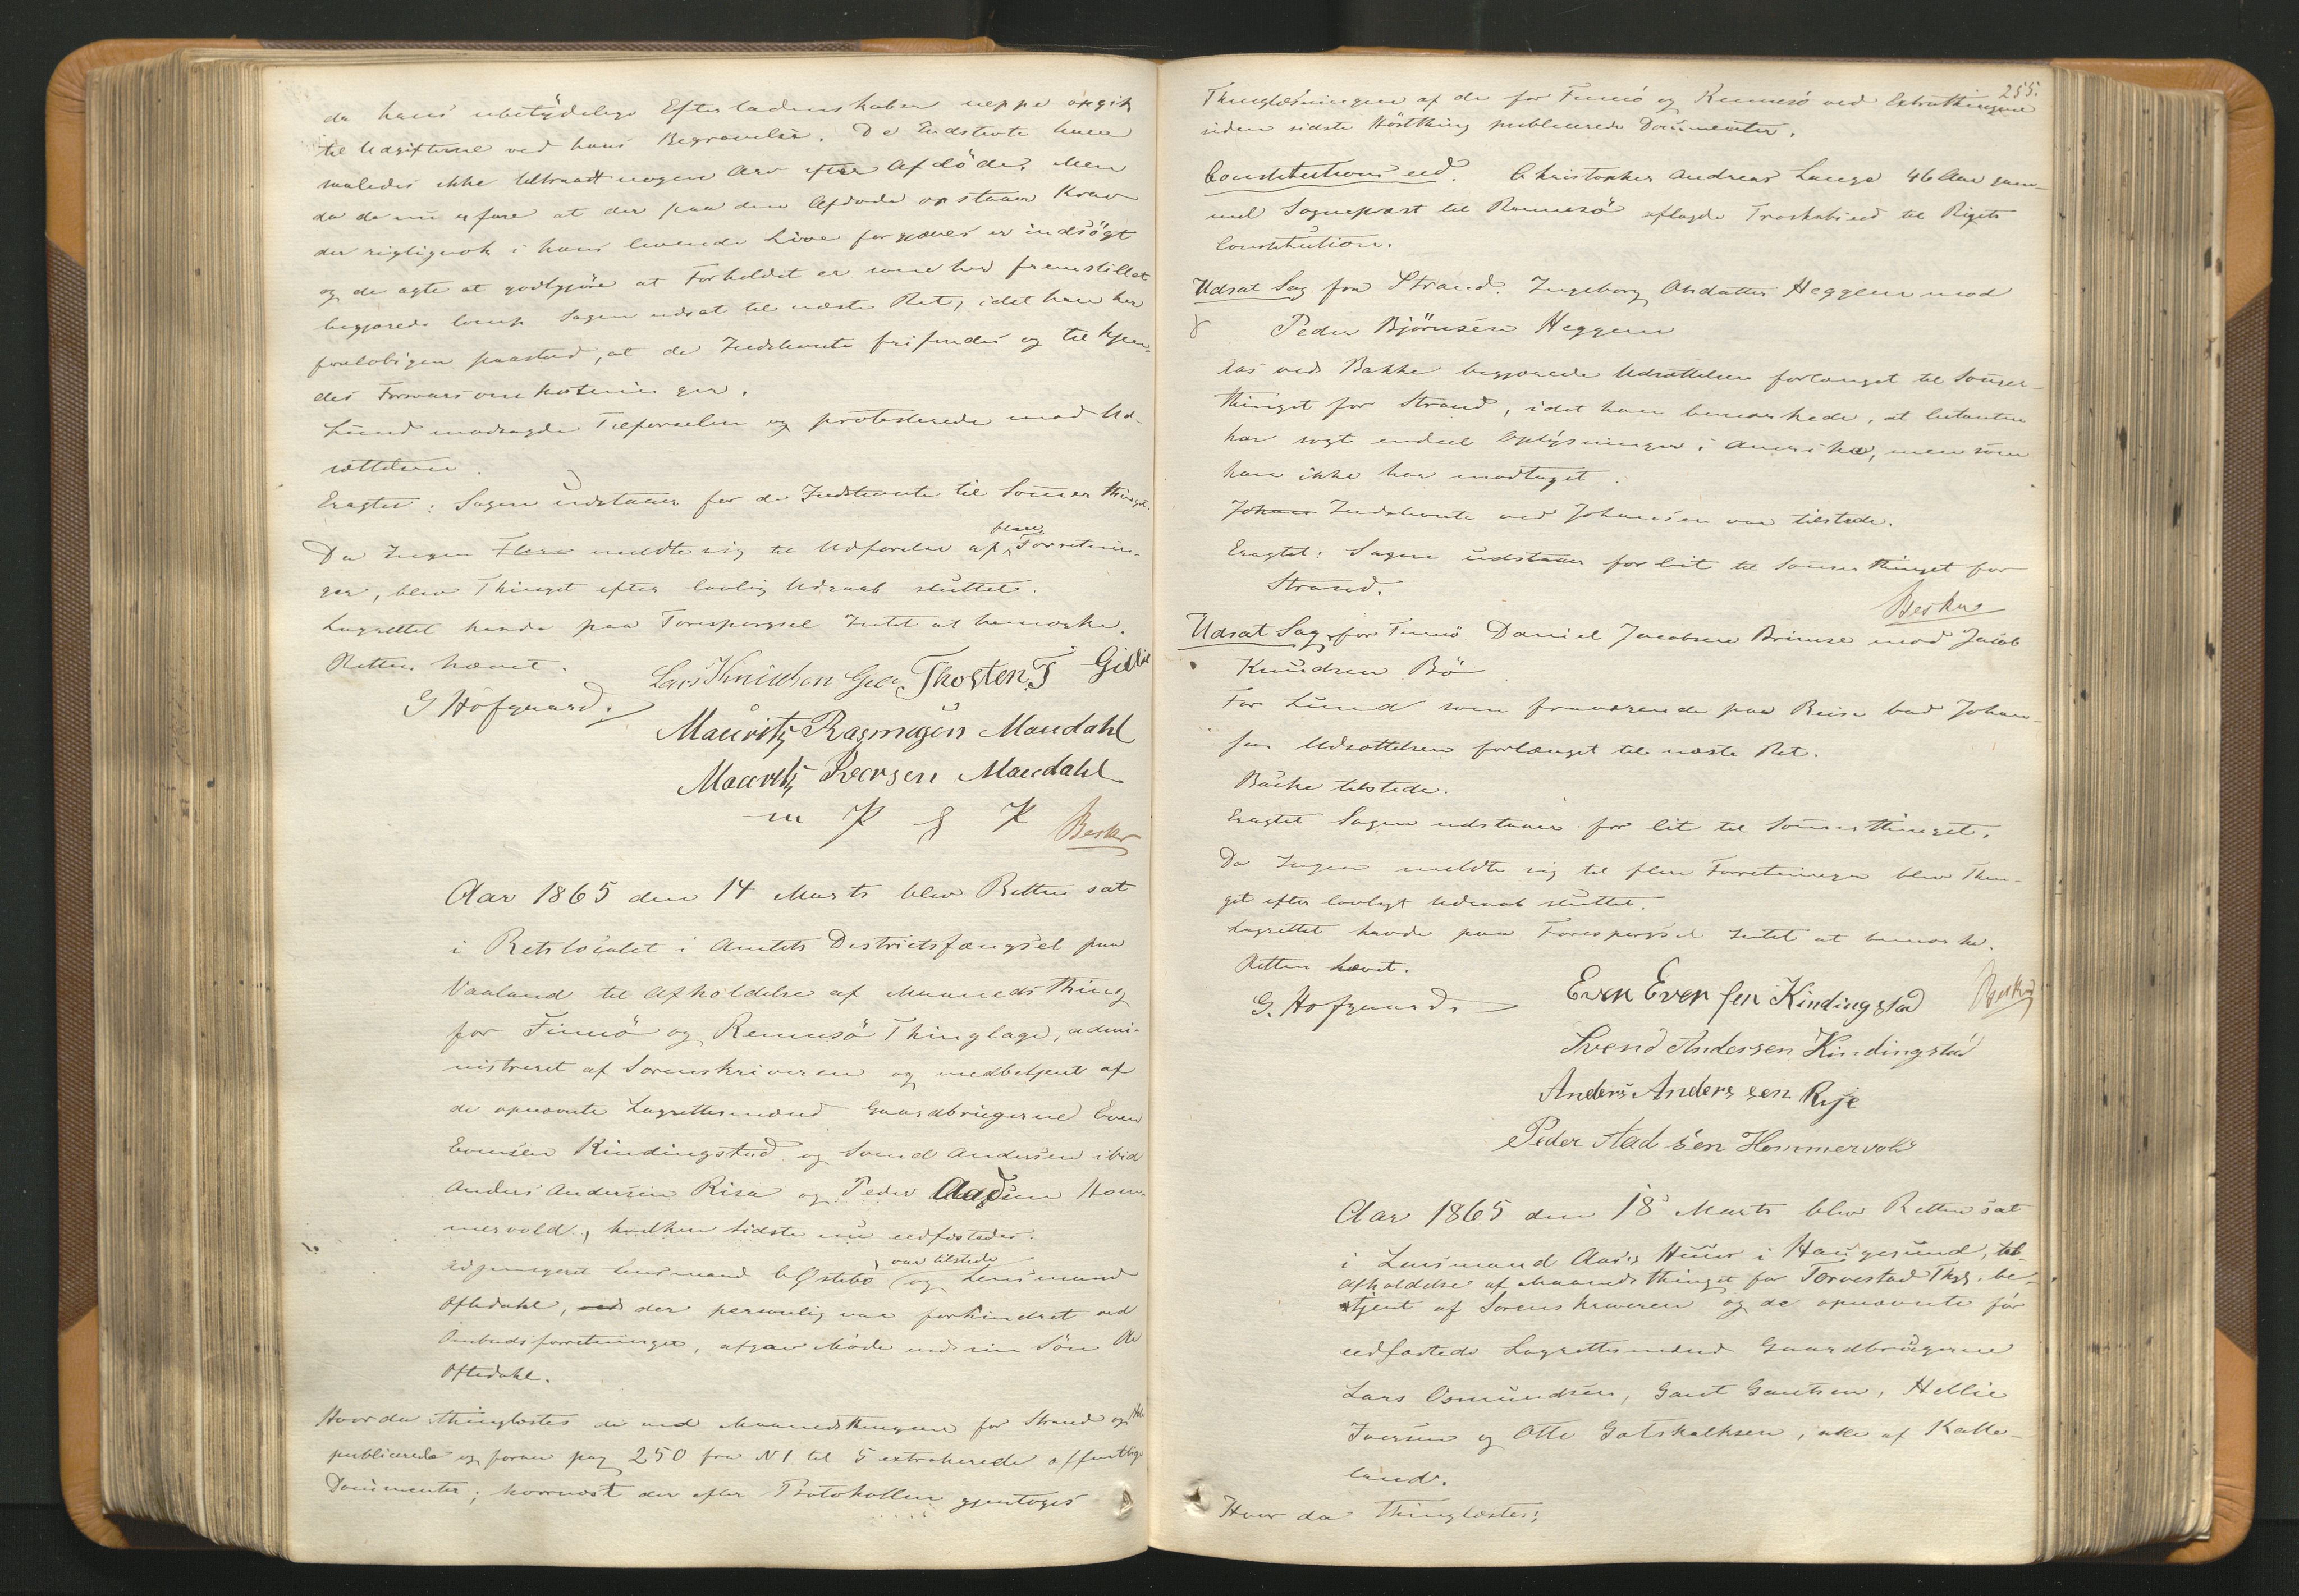 da hans ubetydelige Efterladenskaber neppe opgik
til Udgifterne ved hans Begravelse. De Indstevnte have
saaledes ikke tiltraadt nogen Arv efter Afdöde. Men
da de nu erfare at der paa den Afdöde opstaaer Krav
der rigtignok i hans levende Live forgjæves er indsögt
og de agte at godtgjöre at Forholdet er som her fremstillet
begjærede Comp. Sagen udsat til næste Ret, idet han her
forelöbigen paastod, at de Indstevnte frifindes og tilkjen-
des Forsvarsomkostninger.
Lund modsagde Tilförselen og protesterede mod Ud-
sættelsen.
Eragtet: Sagen udstaaer for de Indstevnte til Somerthinget.
Da Ingen Flere meldte sig til Udförelse af flere Forretnin-
ger, blev Thinget efter lovlig Udraab sluttet.
Lagrettet havde paa Forespörgsel Intet at bemærke.
Retten hævet.
G Hofgaard.
Lars Knudsen Thosten T Gilli
Mauritz Rasmusen Maudahl
Mauritz Pedersen Maudahl
m P K
Aar 1865 den 14 Marts blev Retten sat
i Retslocalet i Amtets Districtsfængsel paa
Vaaland til Afholdelse af Maanedsthing
for Finnö og Rennesö Thinglage, admi-
nistreret af Sorenskriveren og medbetjent af
de opnævnte Lagrettesmænd Gaardbrugerne Even
Evensen Kindingstad og Svend Andersen ibid
Anders Andersen Risa og Peder Aadsen Hom-
mervold, hvilken sidste nu eedfæstedes.
Lensmand Östebö var tilstede og Lensmand
Oftedahl, der personlig var forhindret ved
Ombudsforretninger, afgav Möde ved sin Sön Ole
Oftedahl.
Hvorda thinglæstes de ved Maanedsthingene for Strand og
publicerede og foran pag 250 fra N 1 til 5 extraherede offentlige
Documenter; hvornæst der efter Protokollen gjentoges
255.
Thinglæsningen af de for Finnö og Rennesö ved Extrathingene
siden sidste Höstthing publicerede Documenter.
Constitutionseed. Christopher Andreas Lange 46 Aar gam-
mel Sognepræst til Rennesö aflagde Troskabseed til Rigets
Constitution.
Udsat Sag fra Strand. Ingeborg Olsdatter Heggem mod
Peder Björnsen Heggem
ved Bakke begjærede Udsættelsen forlænget til Somer-
thinget for Strand, idet han bemærkede, at Citanten
har sögt endeel Oplysninger i Amerika, men som
han ikke har modtaget.
Johan Indstevnte ved Johansen var tilstede.
Eragtet: Sagen udstaaer for Cit til Somerthinget for
Strand.
Udsat Sag for Finnö Daniel Jacobsen Brimse mod Jacob
Knudsen Bö
For Lund som fraværende paa Reise bad Johan-
sen Udsættelsen forlænget til næste Ret.
Bakke tilstede.
Eragtet Sagen udstaaer for Cit til Somerthinget.
Da Ingen meldte sig til flere Forretninger blev Thin-
get efter lovligt Udraab sluttet.
Lagrettet havde paa Forespörgsel Intet at bemærke.
Retten hævet.
G. Hofgaard.
Even Evensen Kindingstad
Svend Andersen Kindingstad
Anders Anderssen Rije
Peder Aadsen Hommervold
Aar 1865 den 18 Marts blev Retten sat
i Lensmand Huus i Haugesund, til
Afholdelse af Maanedsthinget for Torvestad Thgl. be-
tjent af Sorenskriveren og de opnævnte för
eedfæstede Lagrettesmænd Gaardbrugerne
Lars Osmundsen, Gaut Gautsen, Hellie
Iversen og Otte Gotskalksen, alle af Kalle-
land.
Hvor da thinglæstes;